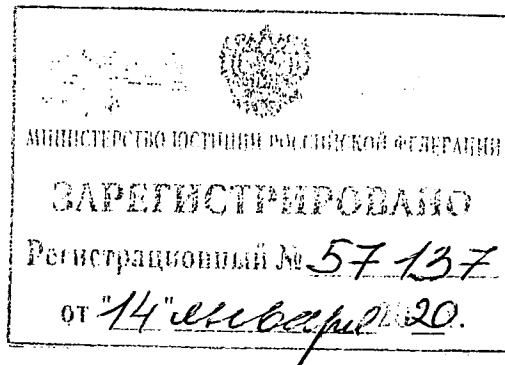 МИНИСТЕРСТВО ЮСТИЦИИ РОССИЙСКОЙ ФЕДЕРАЦИИ
ЗАРЕГИСТРИРОВАНО
Регистрационный № 57137
от "14" января 2020.